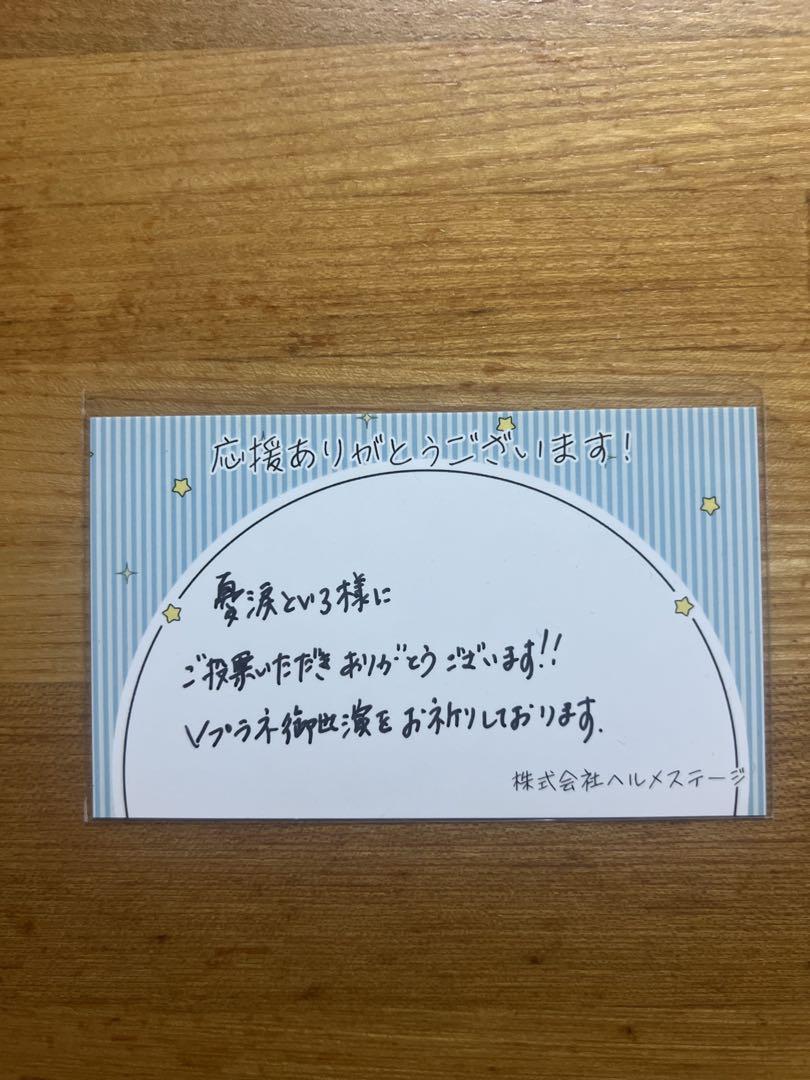 応援ありがとうございます!
憂涙といろ様に
ご投票いただきありがとうございます!!
Vプラネ御出演をお祈りしております.
株式会社ヘルメステージ